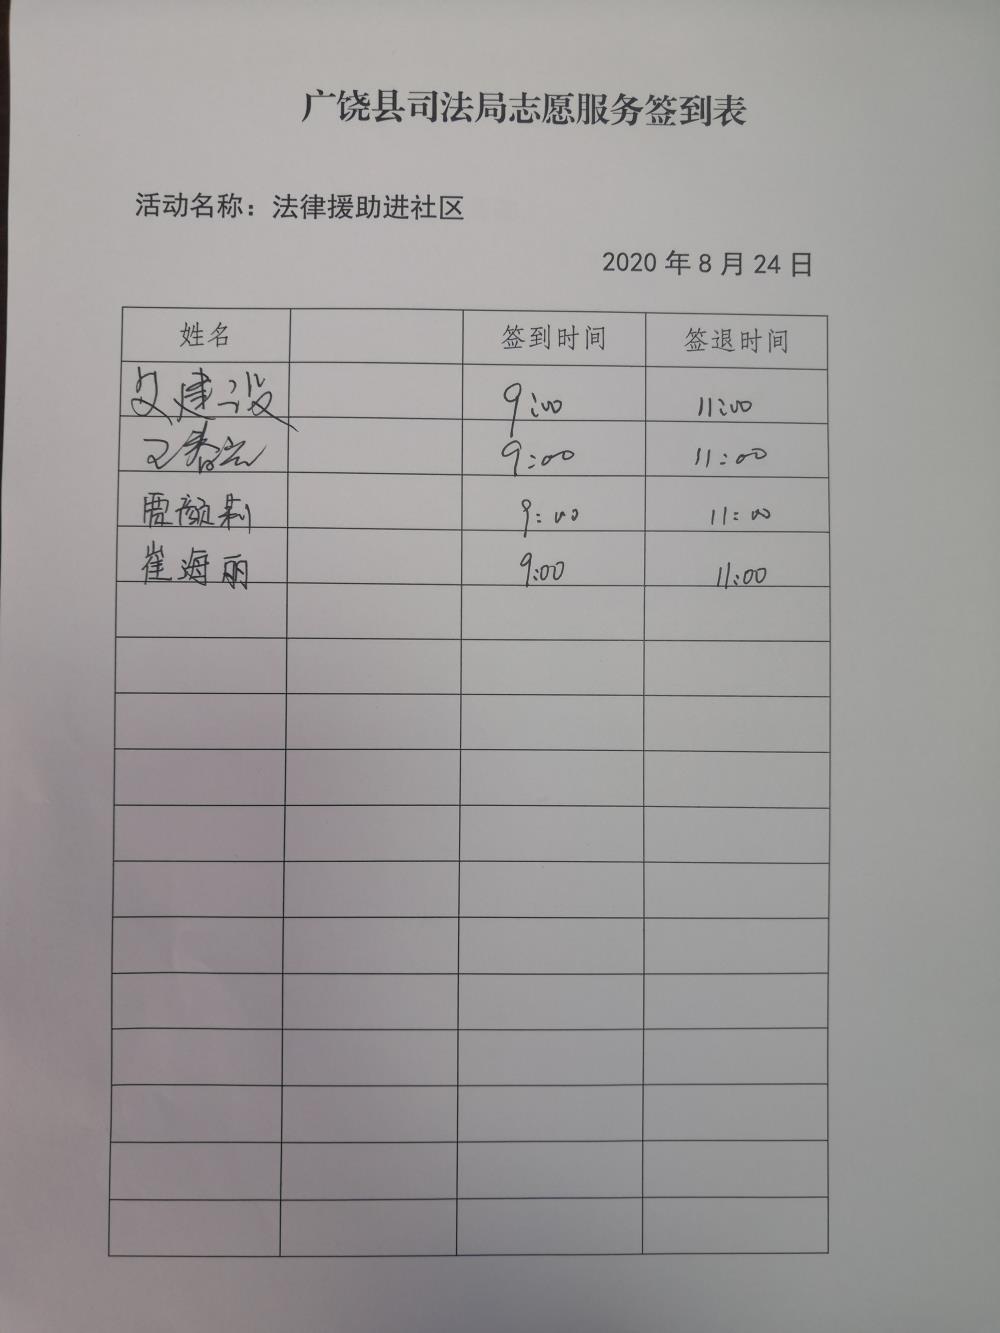 广饶县司法局志愿服务签到表
活动名称：法律援助进社区
2020年8月24日
姓名 签到时间 签退时间
建设 9:00 11:00
9:00 11:00
贾颜莉 9:00 11:00
崔海丽 9:00 11:00